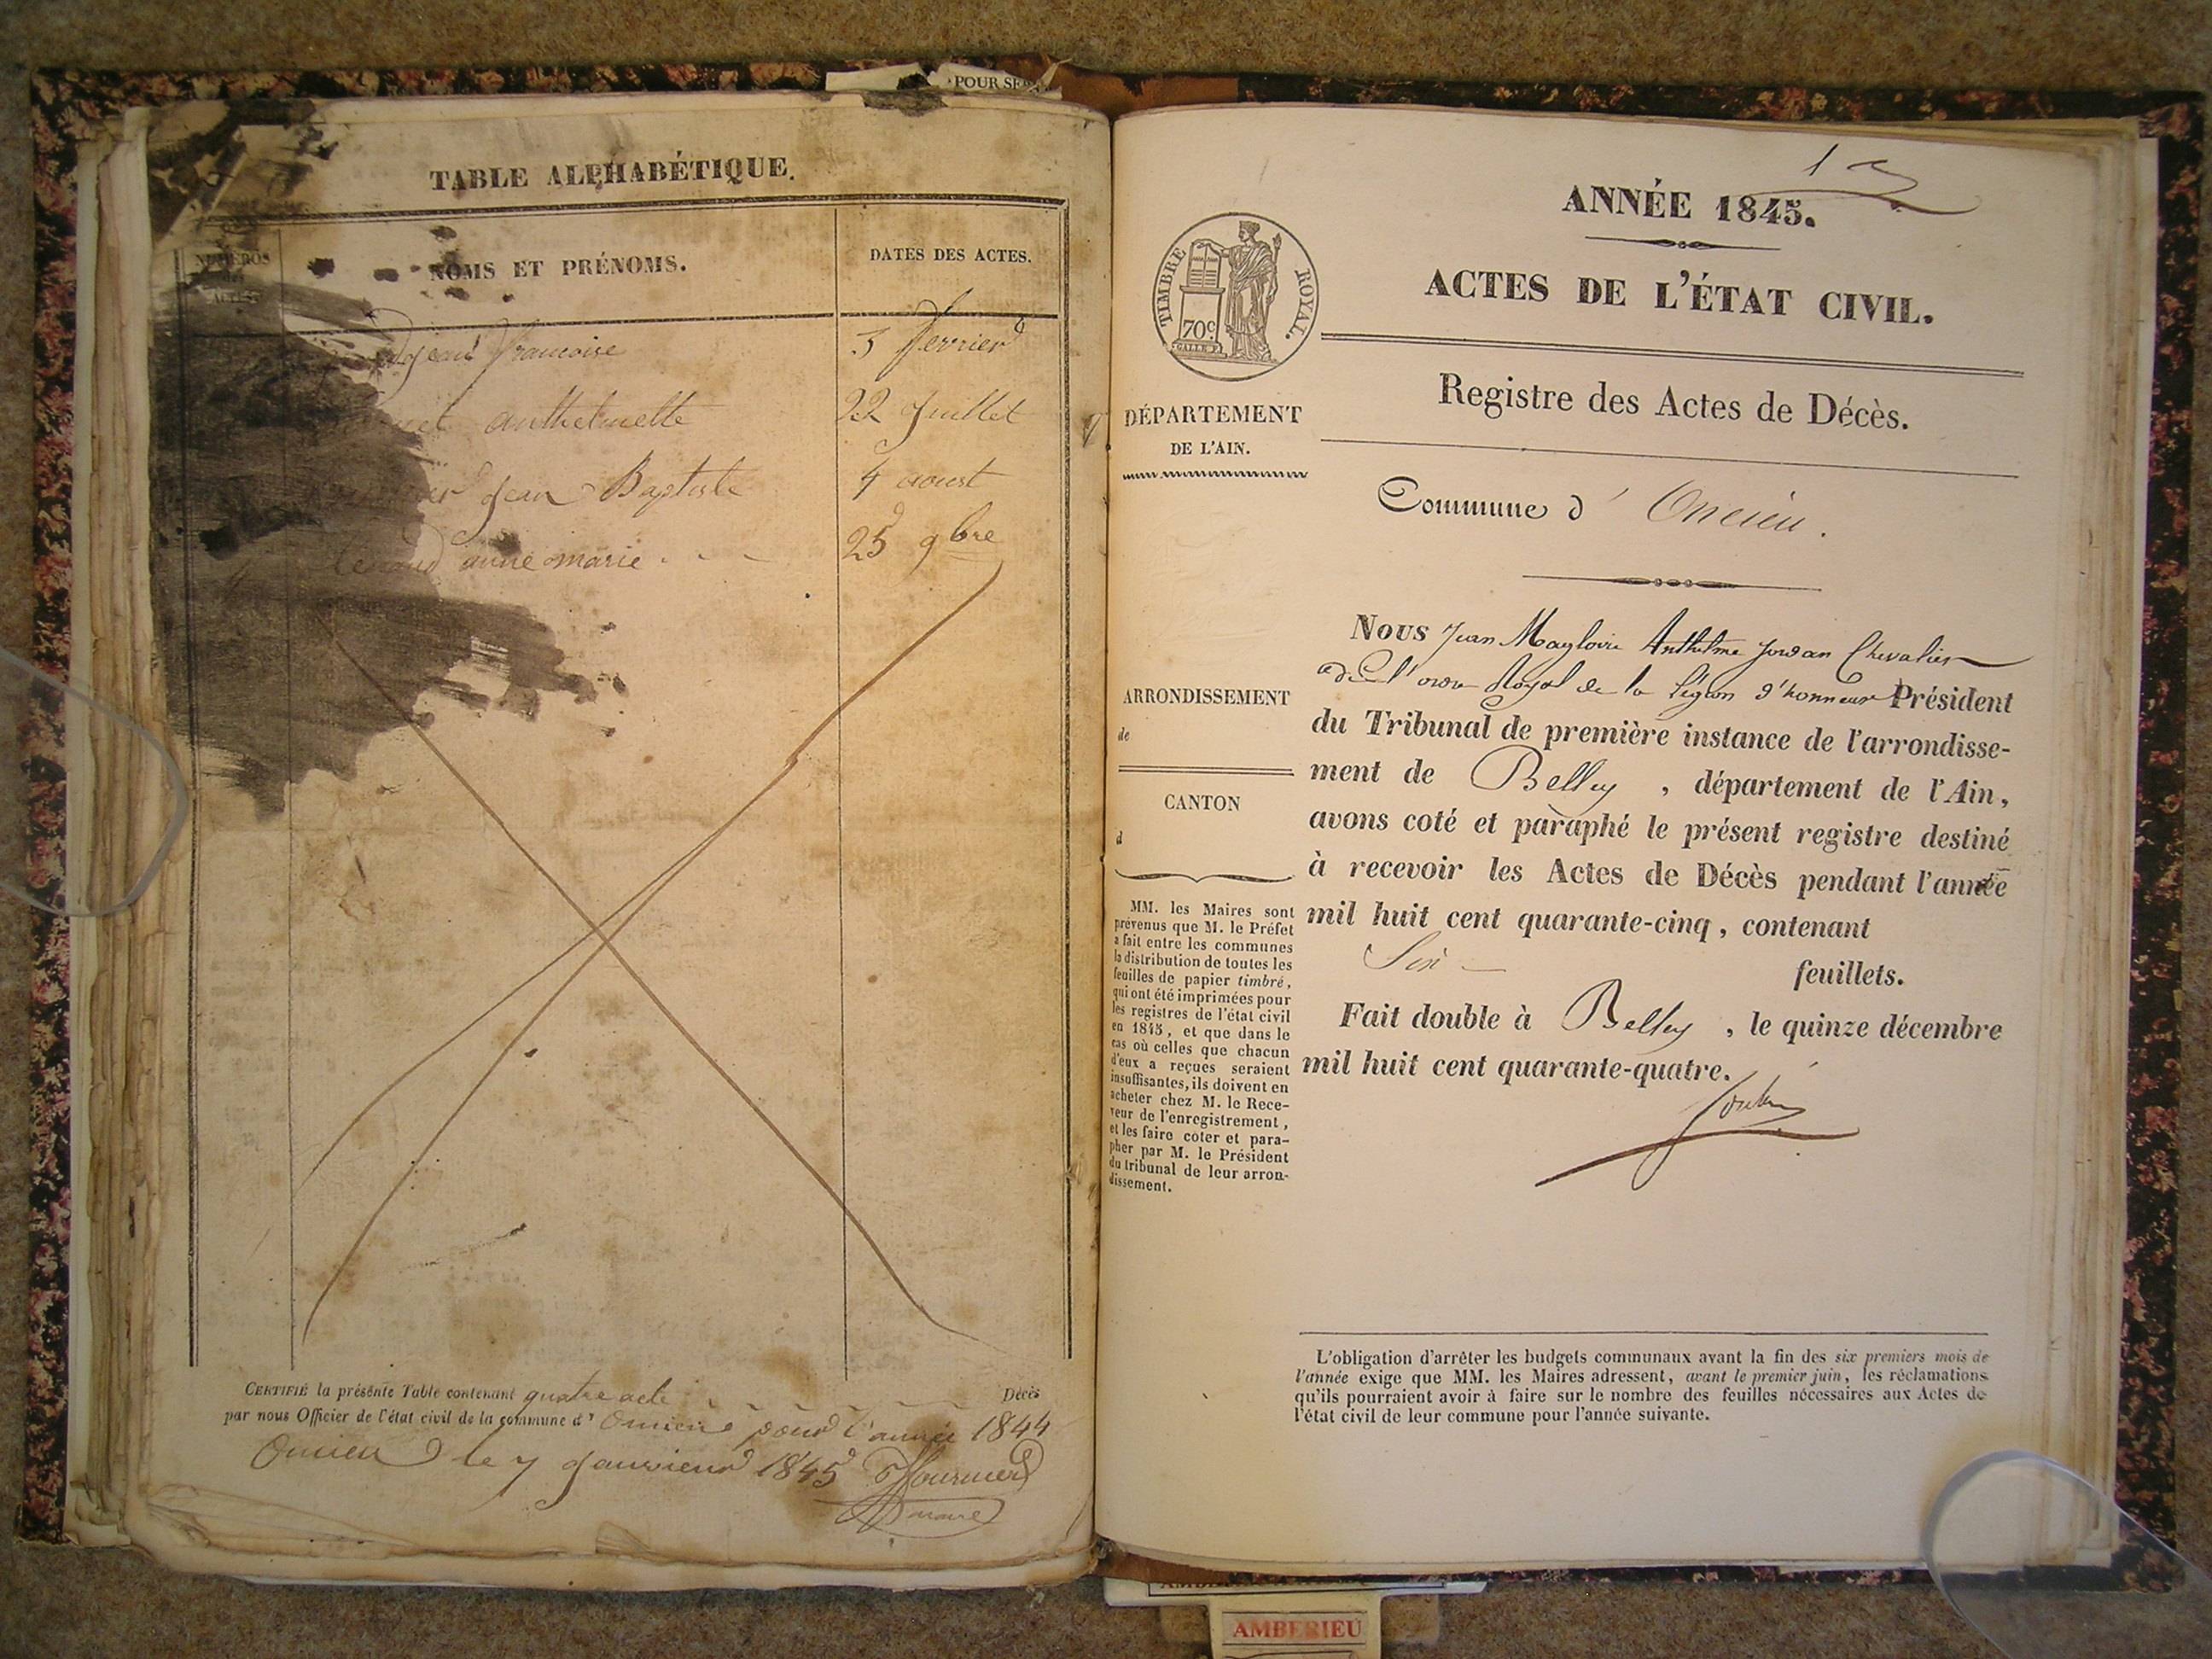 POUR
TABLE ALPHABÉTIQUE.
NUMÉROS
des
ACTES
NOMS ET PRÉNOMS.
DATES DES ACTES.
jean françoise
3 fevrier
anthelmette
22 juillet
jean Baptiste
4 aoust
anne marie
25 9bre
CERTIFIÉ la présente Table contenant quatre acte Décès
par nous Officier de l'état civil de la commune d' Oncieu pour l'année 1844
Oncieu le 7 janvier 1845 Fournier
maire
1
ANNÉE 1845.
ACTES DE L'ÉTAT CIVIL.
TIMBRE ROYAL.
70c
GALLE F.
Registre des Actes de Décès.
DÉPARTEMENT
DE L'AIN.
Commune d' Oncieu.
ARRONDISSEMENT
de
CANTON
d
MM. les Maires sont
prévenus que M. le Préfet
a fait entre les communes
la distribution de toutes les
feuilles de papier timbré,
qui ont été imprimées pour
les registres de l'état civil
en 1845, et que dans le
cas où celles que chacun
d'eux a reçues seraient
insuffisantes, ils doivent en
acheter chez M. le Rece-
veur de l'enregistrement,
et les faire coter et para-
pher par M. le Président
du tribunal de leur arron-
dissement.
Nous Jean Magloire Anthelme Jordan Chevalier
de l'ordre Royal de la légion d'honneur Président
du Tribunal de première instance de l'arrondisse-
ment de Belley, département de l'Ain,
avons coté et paraphé le présent registre destiné
à recevoir les Actes de Décès pendant l'année
mil huit cent quarante-cinq, contenant
Six feuillets.
Fait double à Belley, le quinze décembre
mil huit cent quarante-quatre.
L'obligation d'arrêter les budgets communaux avant la fin des six premiers mois de
l'année exige que MM. les Maires adressent, avant le premier juin, les réclamations
qu'ils pourraient avoir à faire sur le nombre des feuilles nécessaires aux Actes de
l'état civil de leur commune pour l'année suivante.
AMBERIEU